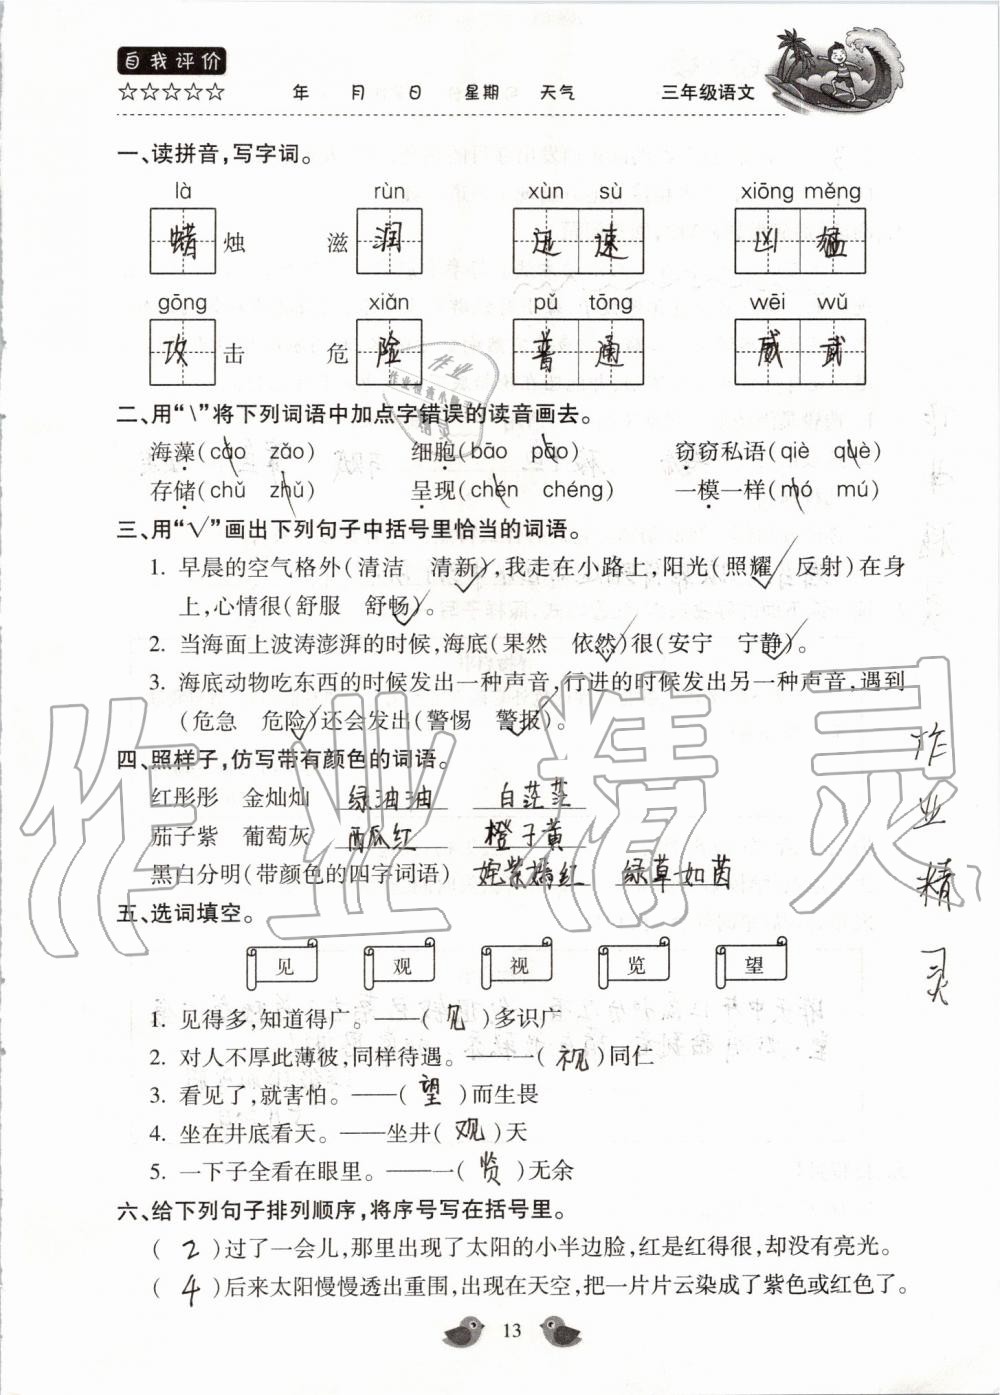 自我评价
☆☆☆☆☆ 年 月 日 星期 天气 三年级语文
一、读拼音,写字词。
là rùn xùn sù xiōng měng
蜡烛 滋润 迅速 凶猛
gōng xiǎn pǔ tōng wēi wǔ
攻击 危险 普通 威武
二、用“\”将下列词语中加点字错误的读音画去。
海藻(cǎo zǎo) 细胞(bāo pāo) 窃窃私语(qiè què)
存储(chǔ zhǔ) 呈现(chén chéng) 一模一样(mó mú)
三、用“√”画出下列句子中括号里恰当的词语。
1. 早晨的空气格外(清洁 清新),我走在小路上,阳光(照耀 反射)在身
上,心情很(舒服 舒畅)。
2. 当海面上波涛澎湃的时候,海底(果然 依然)很(安宁 宁静)。
3. 海底动物吃东西的时候发出一种声音,行进的时候发出另一种声音,遇到
(危急 危险)还会发出(警惕 警报)。
四、照样子,仿写带有颜色的词语。
红彤彤 金灿灿 绿油油 白茫茫
茄子紫 葡萄灰 西瓜红 橙子黄
黑白分明(带颜色的四字词语) 姹紫嫣红 绿草如茵
五、选词填空。
见 观 视 览 望
1. 见得多,知道得广。——(见)多识广
2. 对人不厚此薄彼,同样待遇。——一(视)同仁
3. 看见了,就害怕。——(望)而生畏
4. 坐在井底看天。——坐井(观)天
5. 一下子全看在眼里。——一(览)无余
六、给下列句子排列顺序,将序号写在括号里。
(2)过了一会儿,那里出现了太阳的小半边脸,红是红得很,却没有亮光。
(4)后来太阳慢慢透出重围,出现在天空,把一片片云染成了紫色或红色了。
13
作业精灵
作业精灵